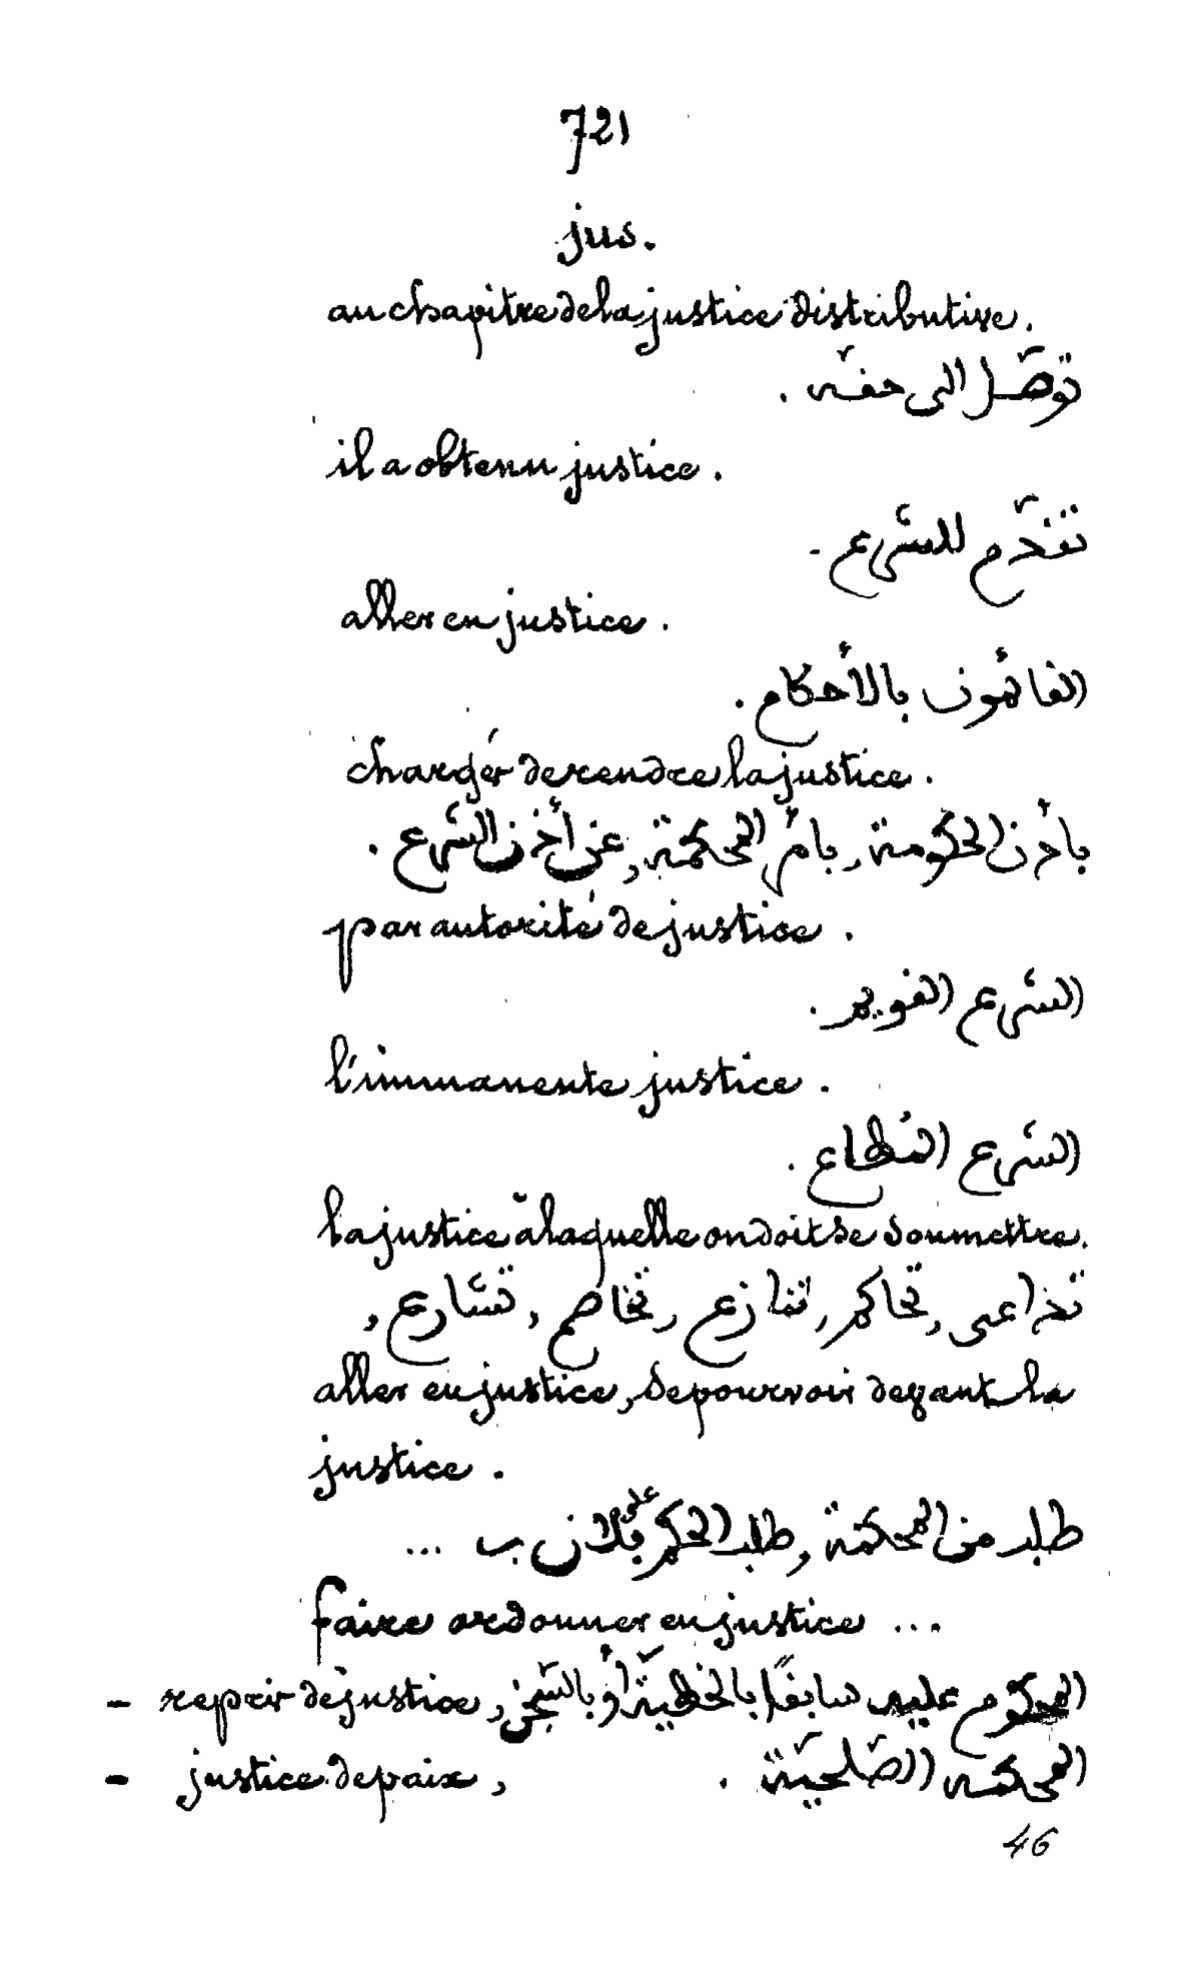 721
jus.
au chapitre de la justice distributive.
توصّل الى حقّه .
il a obtenu justice .
تقدّم للشرع -
aller en justice .
القائمون بالأحكام .
chargér de rendre la justice .
بأذن الحكومة, بأمر المحكمة, عن أذن الشرع .
par autorité de justice .
الشرع القويم .
l'immanente justice .
الشرع المُطاع .
la justice à laquelle on doit se soumettre.
تداعى, تحاكم, تنازع, تخاصم, تشارع,
aller en justice, se pourvoir devant la
justice .
طلب من المحكمة, طلب الحكم على فلان ب ...
faire ordonner en justice ...
- repris de justice, المحكوم عليه سابقًا بالخطيّة أو بالسّجن
- justice de paix, المحكمة الصّلحيّة .
46